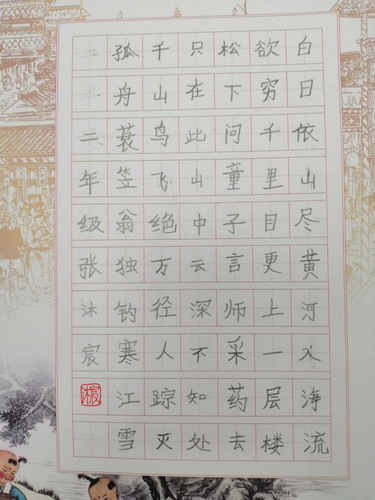 白日依山尽黄河入海流
欲穷千里目更上一层楼
松下问童子言师采药去
只在此山中云深不知处
千山鸟飞绝万径人踪灭
孤舟蓑笠翁独钓寒江雪
二年级张沐宸